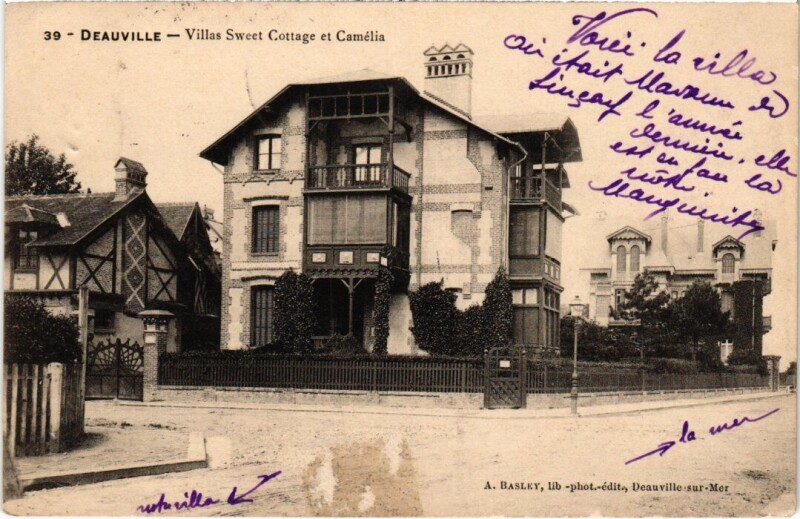 39 - DEAUVILLE — Villas Sweet Cottage et Camélia
Voici la villa
où était Madame de
l'année
dernière, elle
est en face la
nôtre
la mer
A. BASLEY, lib-phot.-édit., Deauville-sur-Mer
notre villa